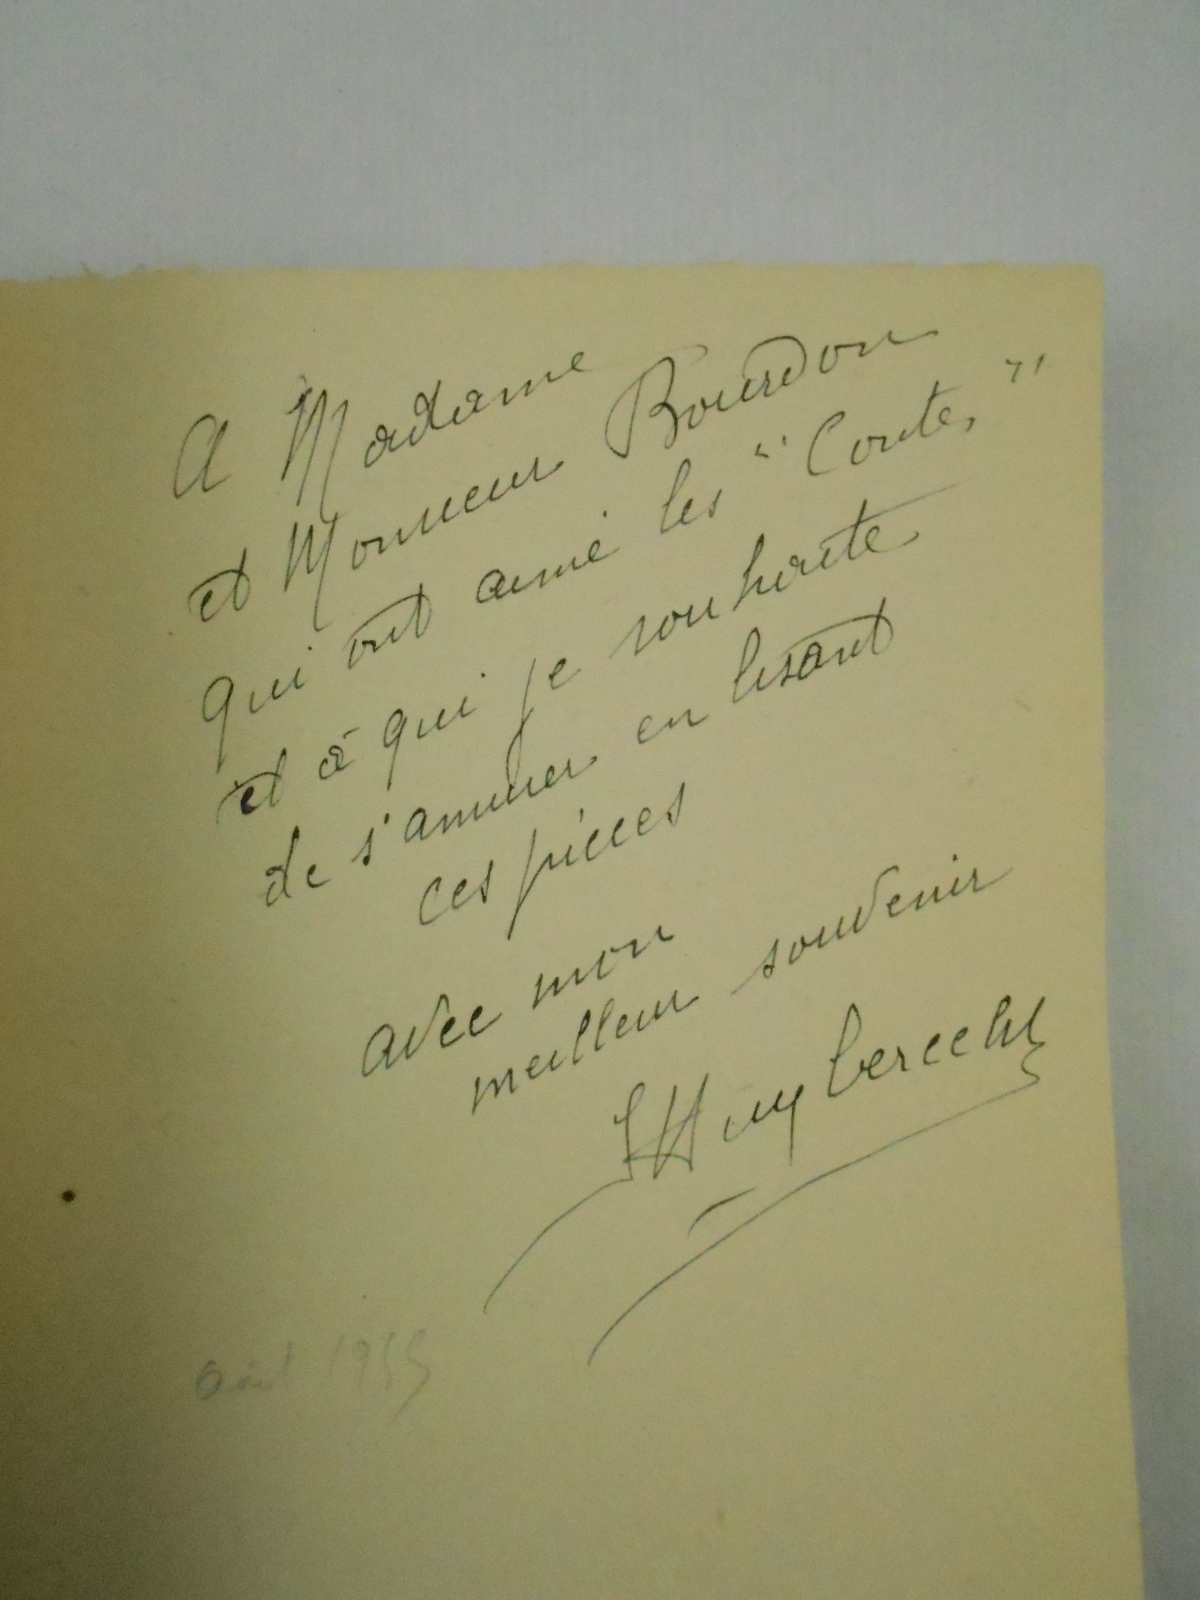 A Madame
et Monsieur Bourdon
qui ont aimé les "Contes"
et à qui je souhaite
de s'amuser en lisant
ces pièces
avec mon
meilleur souvenir
Huyberecht
Août 1955